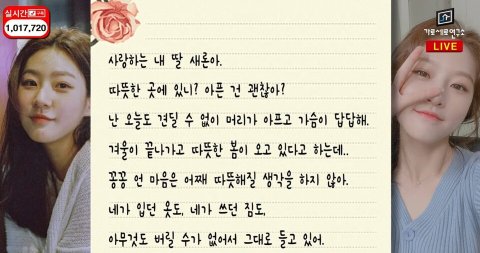 실시간
1,017,720
가로세로연구소
LIVE
사랑하는 내 딸 새론아.
따뜻한 곳에 있니? 아픈 건 괜찮아?
난 오늘도 견딜 수 없이 머리가 아프고 가슴이 답답해.
겨울이 끝나가고 따뜻한 봄이 오고 있다고 하는데..
꽁꽁 언 마음은 어째 따뜻해질 생각을 하지 않아.
네가 입던 옷도, 네가 쓰던 짐도,
아무것도 버릴 수가 없어서 그대로 들고 있어.